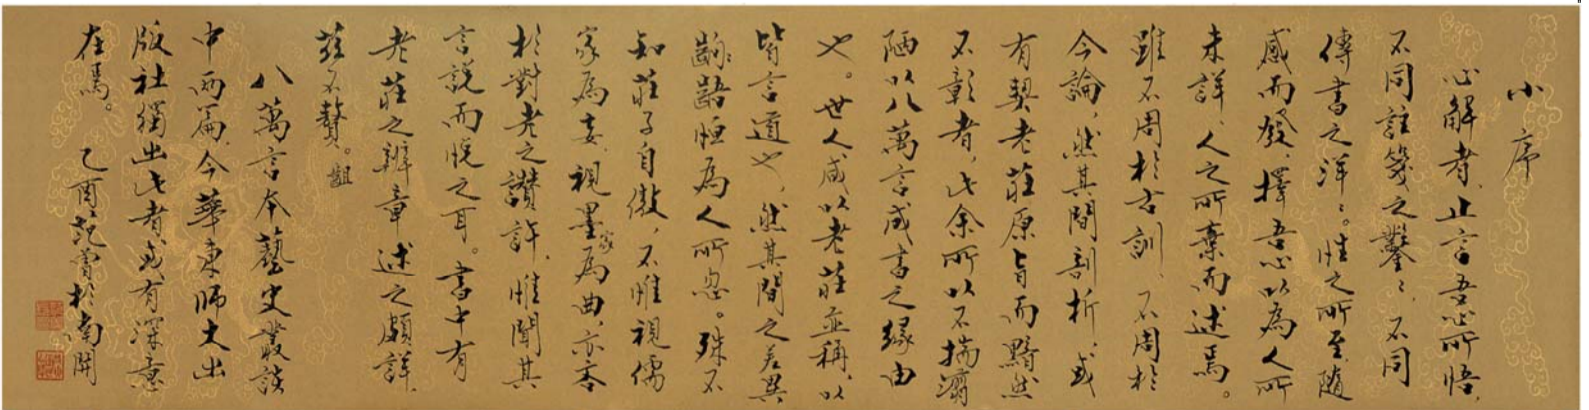 小序
心解者，止言吾心所悟，
不同註箋之鑿鑿，不同
傳書之洋洋。性之所至，随
感而發，擇吾心以為人所
未詳、人之所棄而述焉。
雖不周於古訓、不周於
今論，然其間剖析，或
有契老莊原旨而黯然
不彰者，此余所以不揣淺
陋以八萬言成書之緣由
也。世人咸以老莊並稱，以
皆言道也，然其間之差異
齟齬恒為人所忽。殊不
知莊子自傲，不惟視儒
家為妄，視墨家為曲，亦吝
於對老之讚許，惟聞其
言說而悅之耳。書中有
老莊之辨章述之頗詳，
茲不贅。齟
八萬言本藝史叢談
中兩篇，今華東師大出
版社獨出此者，或有深意
在焉。 乙酉范曾於南開